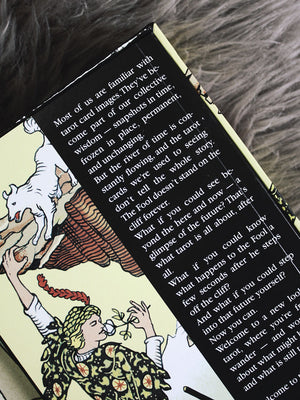 Most of us are familiar with
tarot card images. They've be-
come part of our collective
wisdom — snapshots in time,
frozen in place, permanent,
and unchanging.
But the river of time is con-
stantly flowing, and the tarot
cards we're used to seeing
don't tell the whole story.
The Fool doesn't stand on the
cliff forever.
What if you could see be-
yond the here and now — a
glimpse of the future? That's
what tarot is all about, after
all.
What if you could know
what happens to the Fool a
few seconds after he steps
off the cliff?
And what if you could step
into that future yourself?
Now you can.
Welcome to a new
tarot where you're
wander and
about what might
and what is still
come to